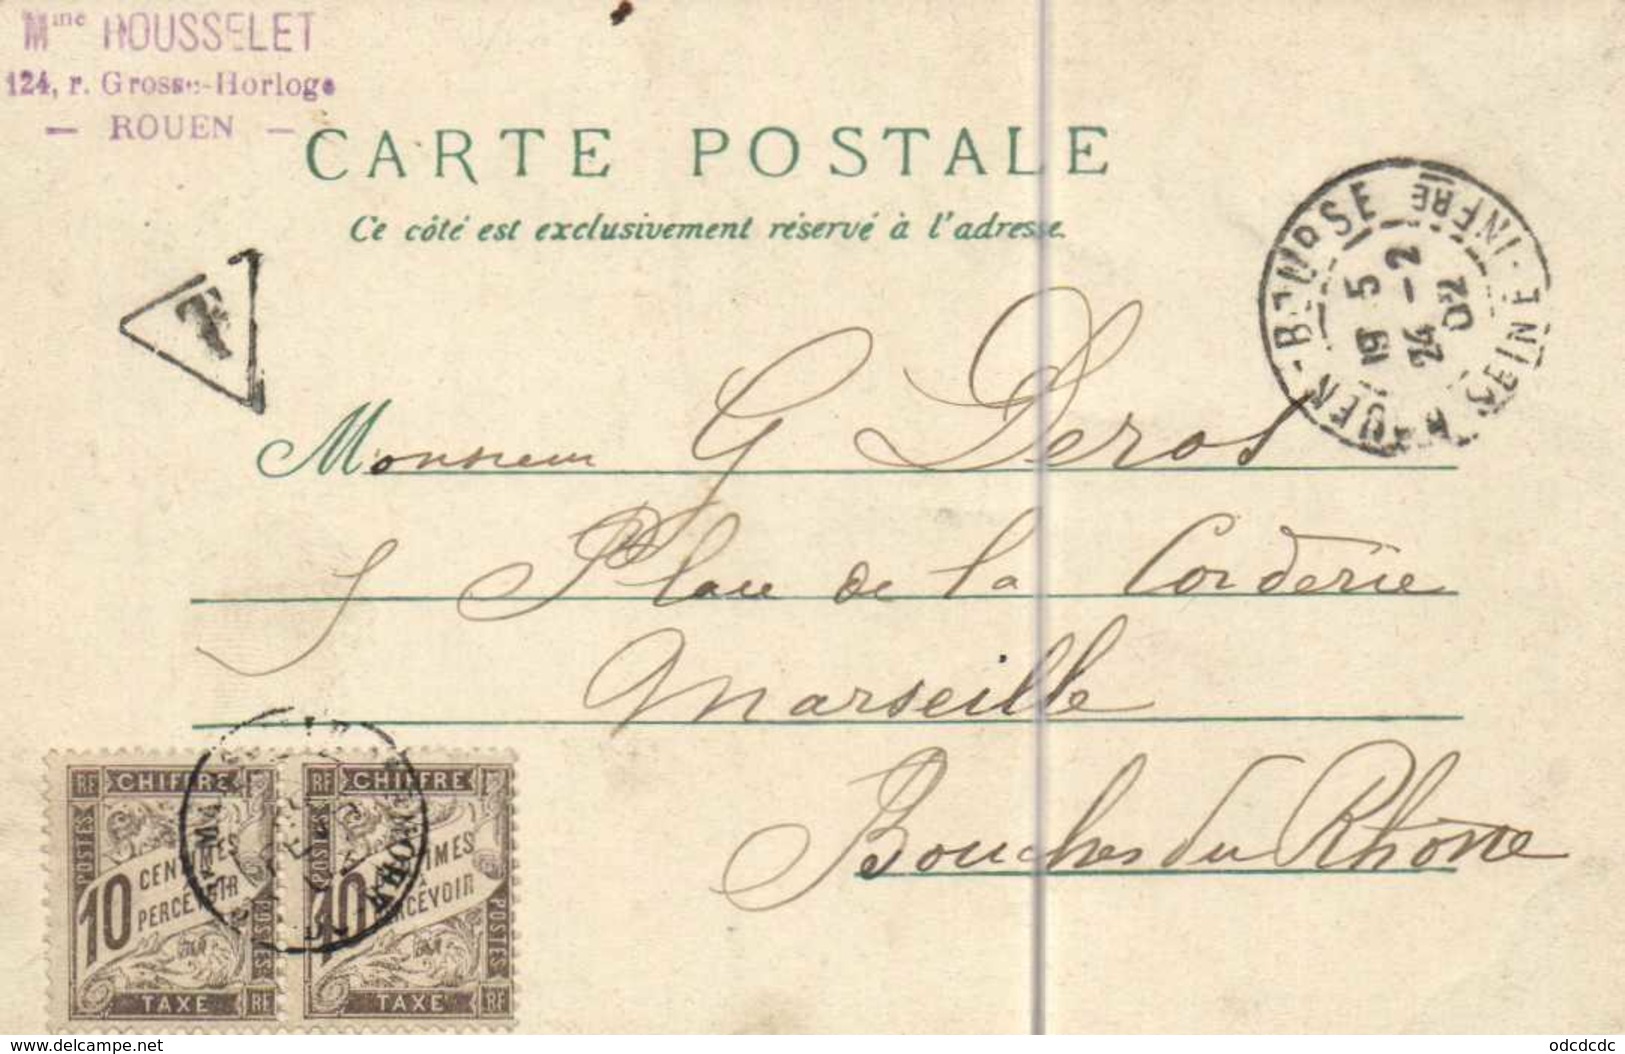 Mme ROUSSELET
124, r. Grosse-Horloge
— ROUEN —
CARTE POSTALE
Ce côté est exclusivement réservé à l'adresse.
T
ROUEN-BOURSE SEINE-INFRE
19 5
24 -2
02
Monsieur G Deros
5 Place de la Corderie
Marseille
Bouches du Rhône
RF CHIFFRE
POSTES
10 CENTIMES
A PERCEVOIR
POSTES
TAXE RF
RF CHIFFRE
POSTES
10 CENTIMES
A PERCEVOIR
POSTES
TAXE RF
delcampe.net
odcdcdc